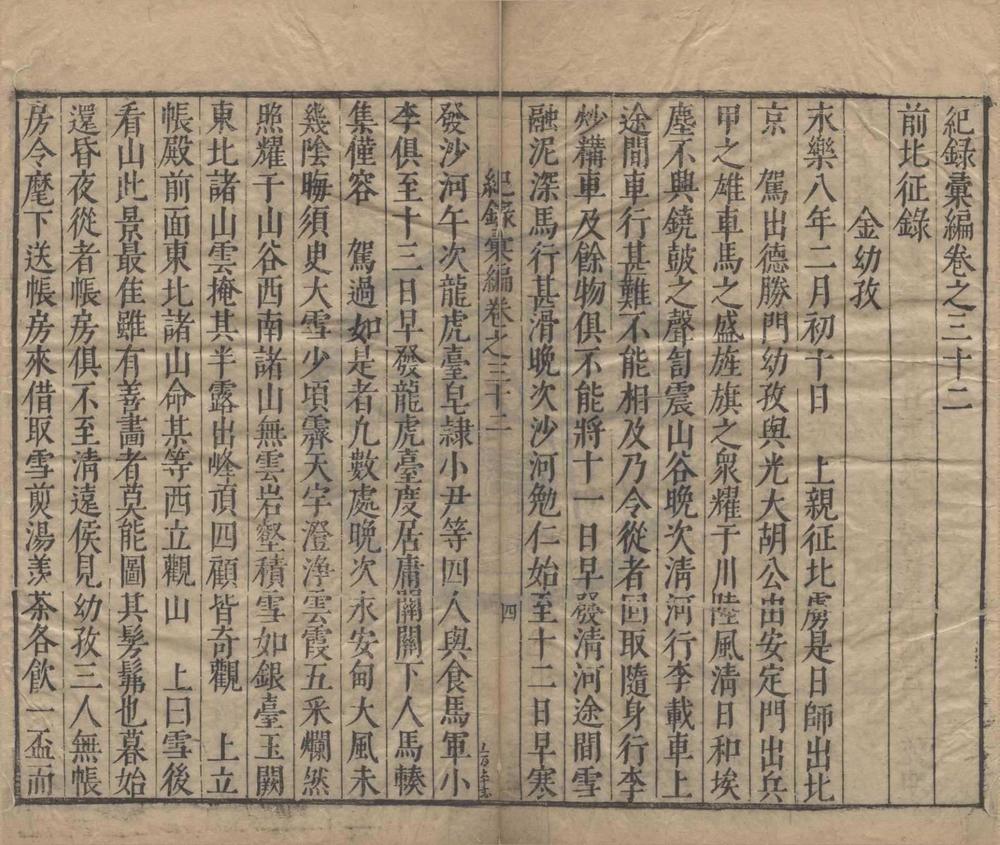 紀録彙編卷之三十二
前北征錄
金幼孜
永樂八年二月初十日　上親征北虜是日師出北
京　駕出德勝門幼孜與光大胡公由安定門出兵
甲之雄車馬之盛旌旗之衆耀于川陸風清日和埃
塵不興鐃鼓之聲訇震山谷晚次清河行李載車上
途間車行甚難不能相及乃令從者回取隨身行李
炒糒車及餘物俱不能將十一日早發清河途間雪
融泥深馬行甚滑晚次沙河勉仁始至十二日早寒
紀錄彙編卷之三十二
四
發沙河午次龍虎臺皂隸小尹等四人與食馬軍小
李俱至十三日早發龍虎臺度居庸關關下人馬輳
集僅容　駕過如是者凡數處晚次永安甸大風未
幾陰晦須臾大雪少頃霽天宇澄淨雲霞五采爛然
照耀于山谷西南諸山無雲岩壑積雪如銀臺玉闕
東北諸山雲掩其半露出峰頂四顧皆奇觀　上立
帳殿前面東北諸山命某等西立觀山　上曰雪後
看山此景最佳雖有善畵者莫能圖其髣髴也暮始
還昏夜從者帳房俱不至清遠侯見幼孜三人無帳
房令麾下送帳房來借取雪煎湯羨茶各飲一盃而